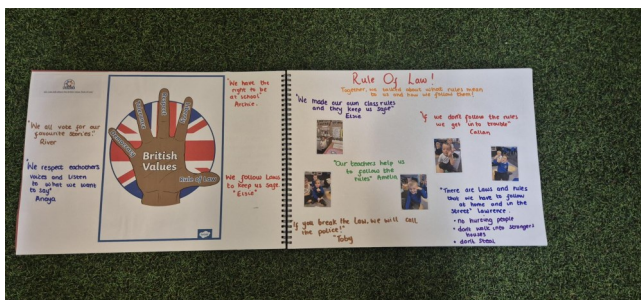 "We all vote for our
favourite stories!"
River
"We respect eachothers
voices and listen
to what we want
to say"
Anaya
British
Values
Rule of Law
"We have the
right to be
at school"
Archie.
We follow Laws
to keep us safe.
"Elsie"
Rule Of Law!
Together, we talked about what rules mean
to us and how we follow them!
"We made our own class rules
and they keep us safe"
Elsie
"If we don't follow the rules
we get into trouble"
Callan
"Our teachers help us
to follow the
rules" Amelia
"There are Laws and rules
that we have to follow
at home and in the
street" Lawrence.
• no hurting people
• don't walk into strangers
houses
• don't steal
If you break the Law, we will call
the police!"
"Toby